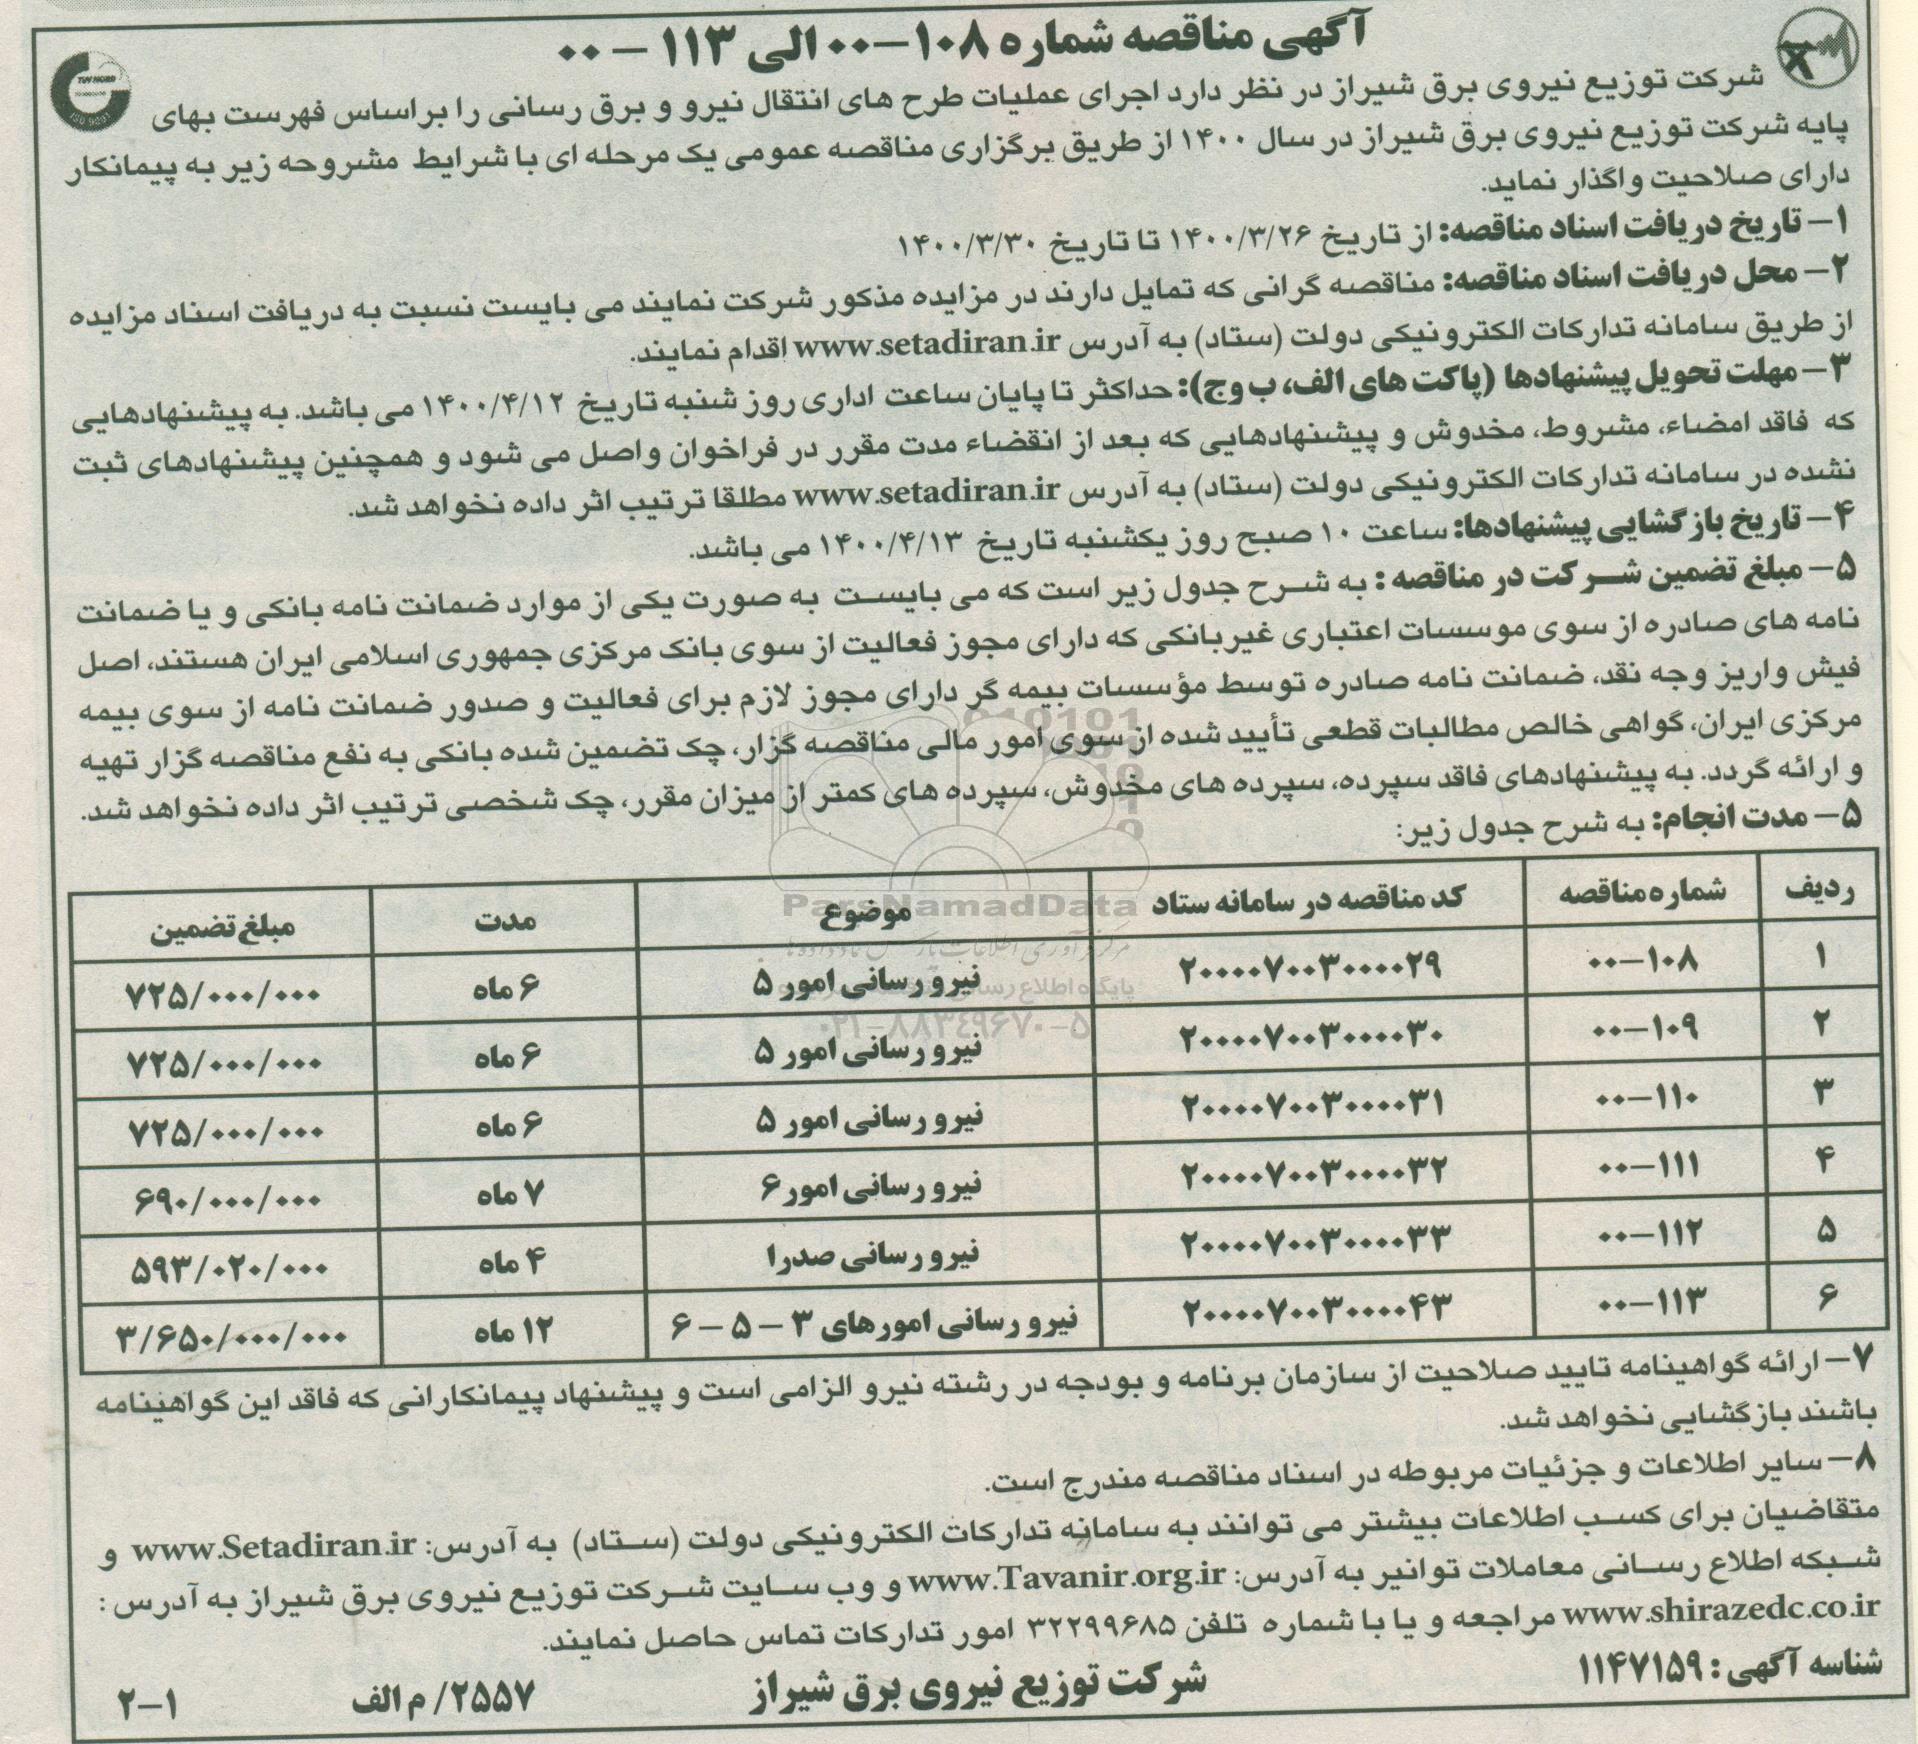 آگهی مناقصه شماره ۱۰۸-۰۰ الی ۱۱۳ - ۰۰
TUV NORD
ISO 9001
شرکت توزیع نیروی برق شیراز در نظر دارد اجرای عملیات طرح های انتقال نیرو و برق رسانی را براساس فهرست بهای
پایه شرکت توزیع نیروی برق شیراز در سال ۱۴۰۰ از طریق برگزاری مناقصه عمومی یک مرحله ای با شرایط مشروحه زیر به پیمانکار
دارای صلاحیت واگذار نماید.
۱- تاریخ دریافت اسناد مناقصه: از تاریخ ۱۴۰۰/۳/۲۶ تا تاریخ ۱۴۰۰/۳/۳۰
۲- محل دریافت اسناد مناقصه: مناقصه گرانی که تمایل دارند در مزایده مذکور شرکت نمایند می بایست نسبت به دریافت اسناد مزایده
از طریق سامانه تدارکات الکترونیکی دولت (ستاد) به آدرس www.setadiran.ir اقدام نمایند.
۳- مهلت تحویل پیشنهادها (پاکت های الف، ب وج): حداکثر تا پایان ساعت اداری روز شنبه تاریخ ۱۴۰۰/۴/۱۲ می باشد. به پیشنهادهایی
که فاقد امضاء، مشروط، مخدوش و پیشنهادهایی که بعد از انقضاء مدت مقرر در فراخوان واصل می شود و همچنین پیشنهادهای ثبت
نشده در سامانه تدارکات الکترونیکی دولت (ستاد) به آدرس www.setadiran.ir مطلقا ترتیب اثر داده نخواهد شد.
۴- تاریخ بازگشایی پیشنهادها: ساعت ۱۰ صبح روز یکشنبه تاریخ ۱۴۰۰/۴/۱۳ می باشد.
۵- مبلغ تضمین شرکت در مناقصه : به شرح جدول زیر است که می بایست به صورت یکی از موارد ضمانت نامه بانکی و یا ضمانت
نامه های صادره از سوی موسسات اعتباری غیربانکی که دارای مجوز فعالیت از سوی بانک مرکزی جمهوری اسلامی ایران هستند، اصل
فیش واریز وجه نقد، ضمانت نامه صادره توسط مؤسسات بیمه گر دارای مجوز لازم برای فعالیت و صدور ضمانت نامه از سوی بیمه
مرکزی ایران، گواهی خالص مطالبات قطعی تأیید شده از سوی امور مالی مناقصه گزار، چک تضمین شده بانکی به نفع مناقصه گزار تهیه
و ارائه گردد. به پیشنهادهای فاقد سپرده، سپرده های مخدوش، سپرده های کمتر از میزان مقرر، چک شخصی ترتیب اثر داده نخواهد شد.
۵- مدت انجام: به شرح جدول زیر:
ردیف شماره مناقصه کد مناقصه در سامانه ستاد موضوع مدت مبلغ تضمین
۱ ۱۰۸-۰۰ ۲۰۰۰۰۷۰۰۳۰۰۰۰۲۹ نیرو رسانی امور ۵ ۶ ماه ۷۲۵/۰۰۰/۰۰۰
۲ ۱۰۹-۰۰ ۲۰۰۰۰۷۰۰۳۰۰۰۰۳۰ نیرو رسانی امور ۵ ۶ ماه ۷۲۵/۰۰۰/۰۰۰
۳ ۱۱۰-۰۰ ۲۰۰۰۰۷۰۰۳۰۰۰۰۳۱ نیرو رسانی امور ۵ ۶ ماه ۷۲۵/۰۰۰/۰۰۰
۴ ۱۱۱-۰۰ ۲۰۰۰۰۷۰۰۳۰۰۰۰۳۲ نیرو رسانی امور ۶ ۷ ماه ۶۹۰/۰۰۰/۰۰۰
۵ ۱۱۲-۰۰ ۲۰۰۰۰۷۰۰۳۰۰۰۰۳۳ نیرو رسانی صدرا ۴ ماه ۵۹۳/۰۲۰/۰۰۰
۶ ۱۱۳-۰۰ ۲۰۰۰۰۷۰۰۳۰۰۰۰۴۳ نیرو رسانی امورهای ۳ - ۵ - ۶ ۱۲ ماه ۳/۶۵۰/۰۰۰/۰۰۰
ParsNamadData
۰۲۱-۸۸۳۴۹۶۷۰-۵
۷- ارائه گواهینامه تایید صلاحیت از سازمان برنامه و بودجه در رشته نیرو الزامی است و پیشنهاد پیمانکارانی که فاقد این گواهینامه
باشند بازگشایی نخواهد شد.
۸- سایر اطلاعات و جزئیات مربوطه در اسناد مناقصه مندرج است.
متقاضیان برای کسب اطلاعات بیشتر می توانند به سامانه تدارکات الکترونیکی دولت (ستاد) به آدرس: www.Setadiran.ir و
شبکه اطلاع رسانی معاملات توانیر به آدرس: www.Tavanir.org.ir و وب سایت شرکت توزیع نیروی برق شیراز به آدرس :
www.shirazedc.co.ir مراجعه و یا با شماره تلفن ۳۲۲۹۹۶۸۵ امور تدارکات تماس حاصل نمایند.
شناسه آگهی : ۱۱۴۷۱۵۹
شرکت توزیع نیروی برق شیراز
۲۵۵۷/ م الف
۲-۱